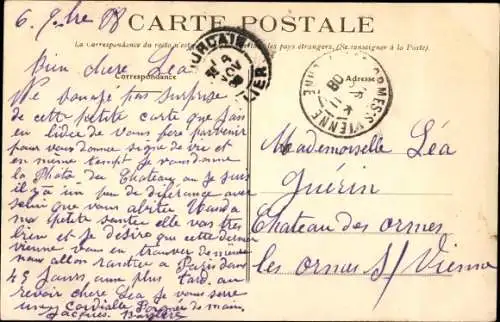 6. 9bre 08
CARTE POSTALE
La Correspondance du recto n'est pas les pays étrangers. (Se renseigner à la Poste).
Correspondance
Adresse
Bien chere Léa
Ne soyez pas surprise
de cette petite carte que j'ai
en l'idée de vous fere parvenir
pour vous donner signe de vie et
en meme temps je vous donne
la Photo du Chateau ou je suis
il y a un peu de diferance avec
selui que vous abitez
ma petite santée elle vas très
bien et je désire que cette dernière
vienne vous en trouver de meme
nous allon rantrer a Paris dans
45 jours au plus tard. au
revoir chere Léa je vous serre
une cordialle Poignée de main,
Jacques
Mademoiselle Léa
Guérin
Chateau des ormes
les ormes S/ Vienne